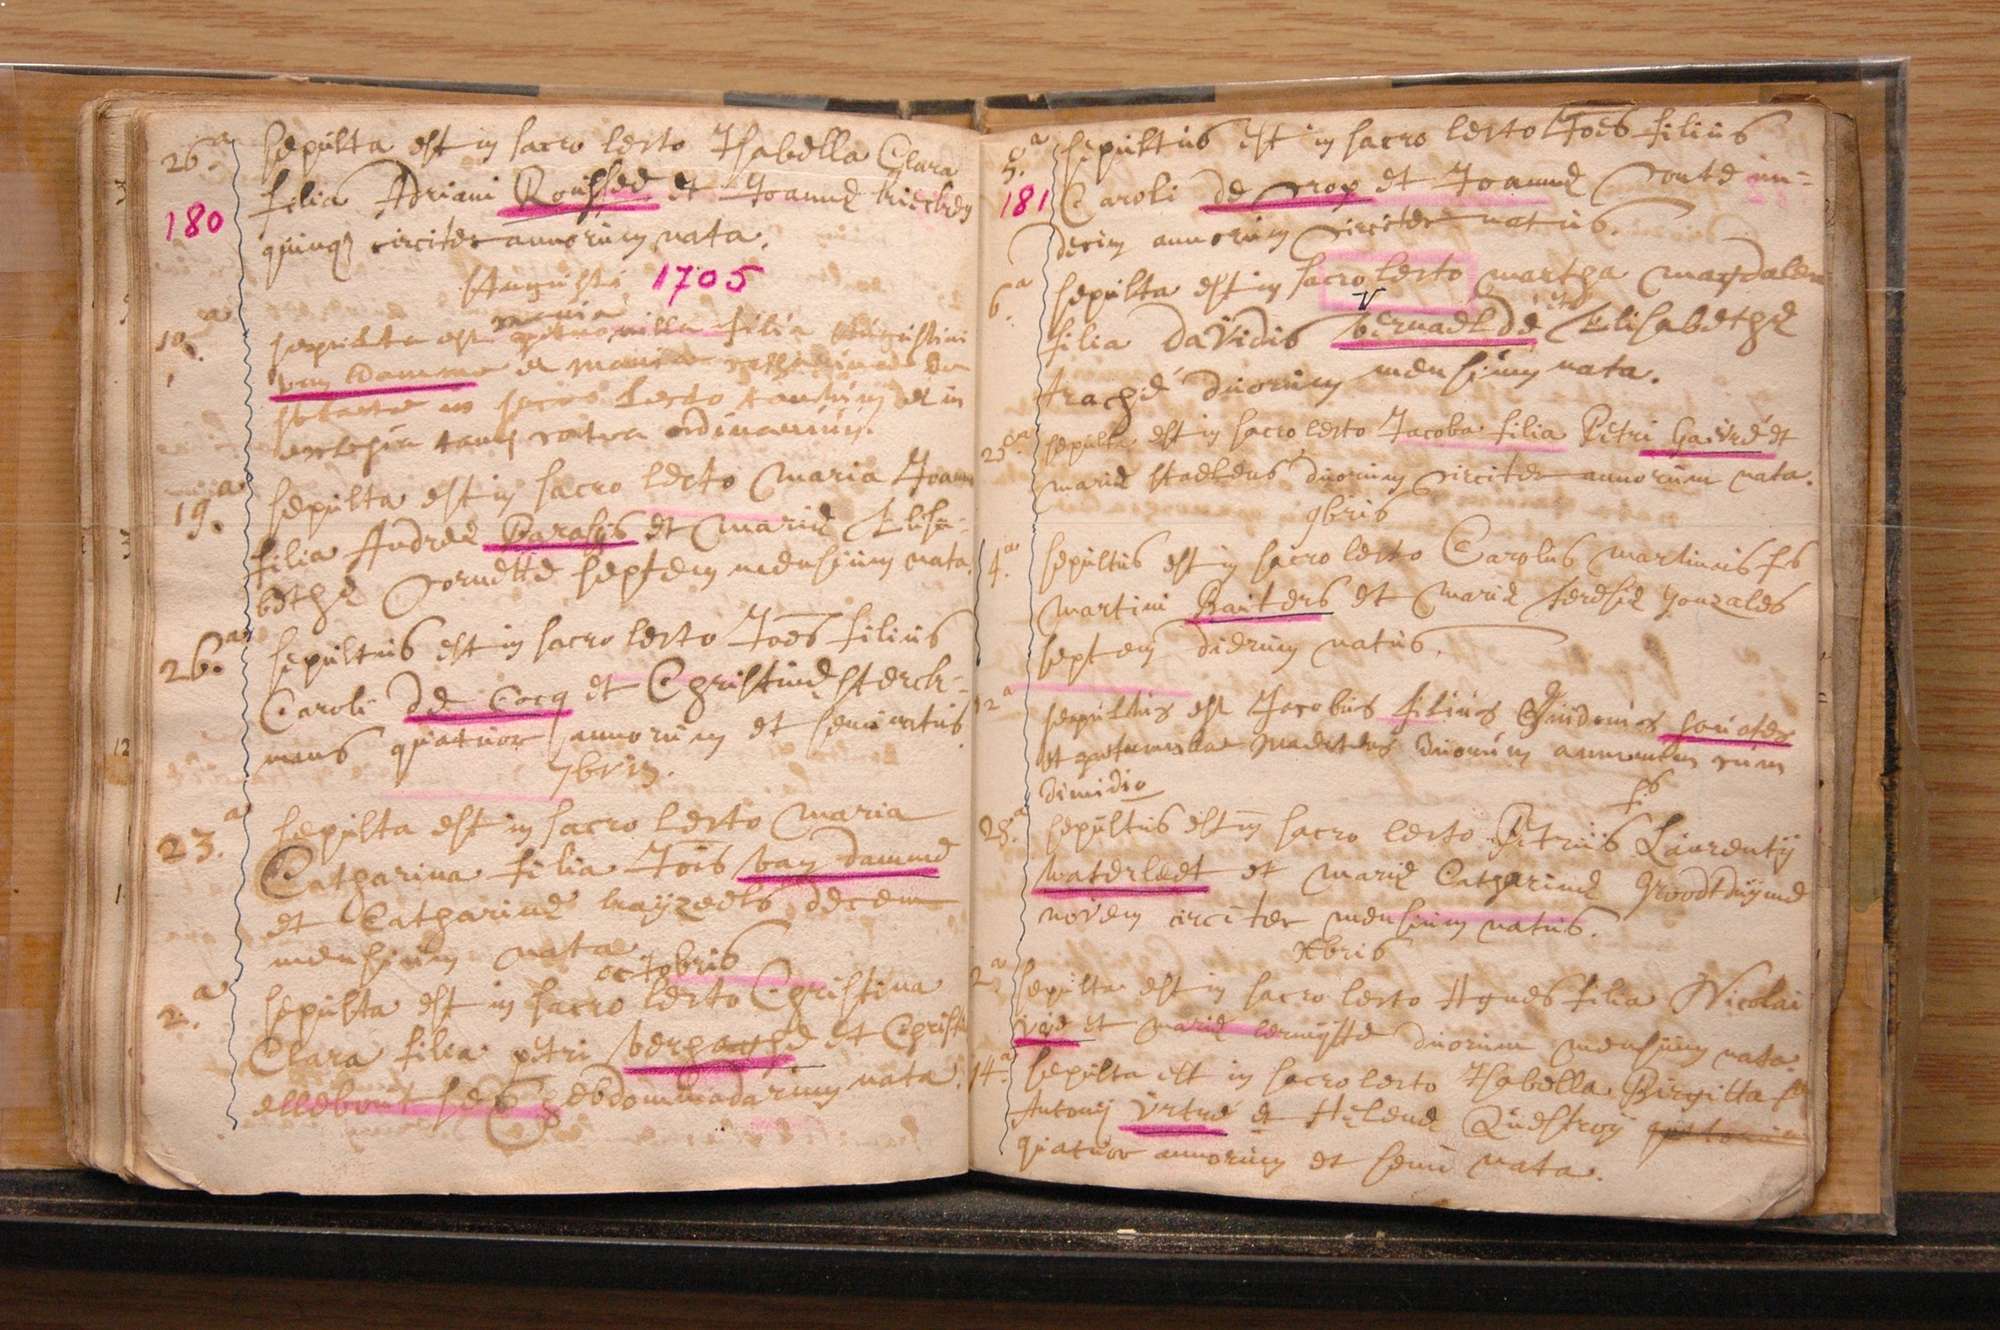 26.a sepulta est in sacro lecto Isabella Clara
180 filia Adriani Roussee et Joannæ
quinq circiter annorum nata.
Augusti 1705
10.a sepulta est maria filia Augustini
van damme et
in sacro lecto tantum et in
ordinarium.
19.a sepulta est in sacro lecto maria Joanna
filia Andreæ et mariæ Elisa-
bethæ septem mensium nata.
26.a sepultus est in sacro lecto Joes filius
Caroli de Cocq et Christinæ sterck-
mans quatuor annorum et semi natus.
7bris.
23.a sepulta est in sacro lecto maria
Catharina filia Jois van damme
et Catharinæ decem
mensium nata
octobris
2.a sepulta est in sacro lecto Christina
Clara filia petri et Christi
ellebout sex hebdommadarum nata.
5.a sepultus est in sacro lecto Joes filius
181 Caroli de et Joannæ un-
decim annorum circiter natus.
6.a sepulta est in sacro lecto martha magdalena
filia davidis et Elisabethæ
trache duorum mensium nata.
sepulta est in sacro lecto Jacoba filia Petri et
mariæ staelens duorum circiter annorum nata.
9bris
4.a sepultus est in sacro lecto Carolus martinus fs
martini Bauters et mariæ teresiæ gonzales
septem dierum natus.
12a sepultus est Jacobus filius
et duorum annorum cum
dimidio
28.a sepultus est in sacro lecto Petrus fs Laurentij
waterleet et mariæ Catharinæ
novem circiter mensium natus.
Xbris
sepulta est in sacro lecto Agnes filia Nicolai
et mariæ duorum mensium nata.
14.a sepulta est in sacro lecto Isabella Birgitta fa
Antonij et Helenæ Questroy
quatuor annorum et semi nata.